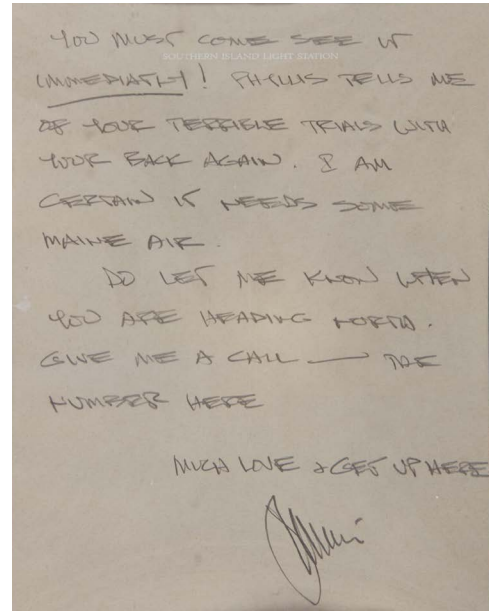 YOU MUST COME SEE IT
SOUTHERN ISLAND LIGHT STATION
IMMEDIATELY! PHYLLIS TELLS ME
OF YOUR TERRIBLE TRIALS WITH
YOUR BACK AGAIN. I AM
CERTAIN IT NEEDS SOME
MAINE AIR.
DO LET ME KNOW WHEN
YOU ARE HEADING NORTH.
GIVE ME A CALL — THE
NUMBER HERE
MUCH LOVE & GET UP HERE